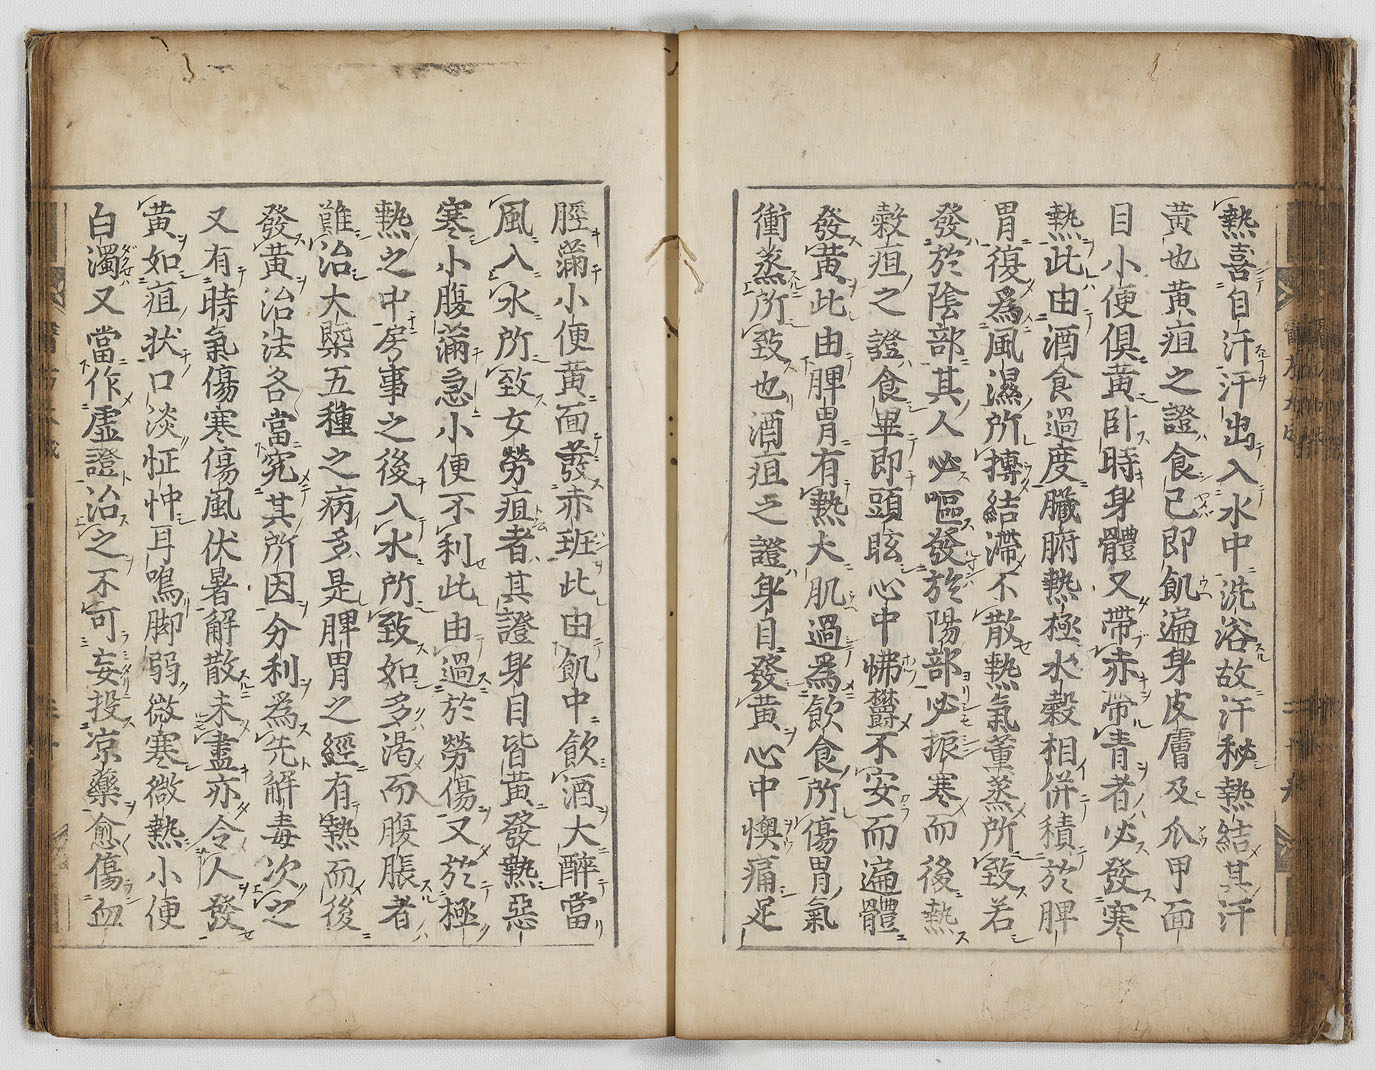 熱喜自汗汗出入水中洗浴故汗秘熱結其汗
黃也黃疸之證食已即飢遍身皮膚及爪甲面
目小便俱黃卧時身體又帶赤帶青者必發寒
熱此由酒食過度臟腑熱極水穀相併積於脾
胃復爲風濕所搏結滯不散熱氣薰蒸所致若
發於陰部其人必嘔發於陽部必振寒而後熱
穀疸之證食畢即頭眩心中怫欝不安而遍體
發黃此由脾胃有熱大肌過爲飮食所傷胃氣
衝蒸所致也酒疸之證身目發黃心中懊痛足
脛滿小便黃面發赤班此由飢中飮酒大醉當
風入水所致女勞疸者其證身目皆黃發熱惡
寒小腹滿急小便不利此由過於勞傷又於極
熱之中房事之後入水所致如多渴而腹脹者
難治大槩五種之病多是脾胃之經有熱而後
發黃治法各當究其所因分利爲先解毒次之
又有時氣傷寒傷風伏暑解散未盡亦令人發
黃如疸状口淡怔忡耳鳴脚弱微寒微熱小便
白濁又當作虛證治之不可妄投凉藥愈傷血